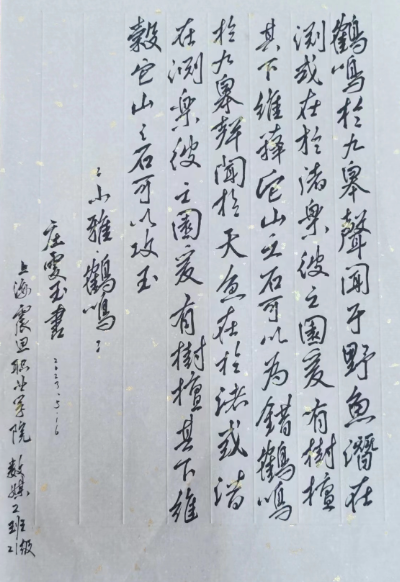 鶴鳴於九皋聲聞于野魚潛在
渕或在於渚樂彼之園爰有樹檀
其下維蘀它山之石可以為錯鶴鳴
於九皋聲聞於天魚在於渚或潜
在渕樂彼之園爰有樹檀其下維
榖它山之石可以攻玉
：小雅鶴鳴：
庄雯玉書
上海震旦职业学院 数媒2班级